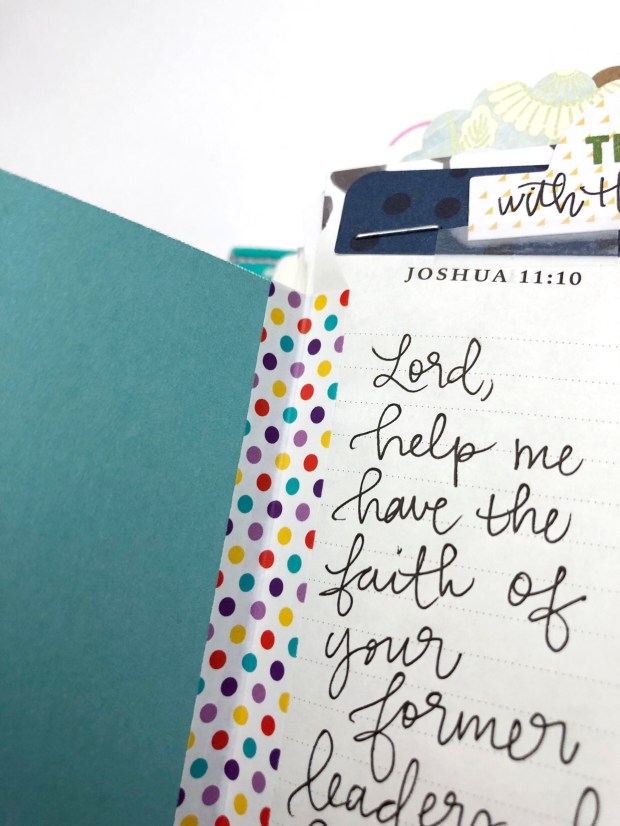 with
JOSHUA 11:10
Lord,
help me
have the
faith of
your
former